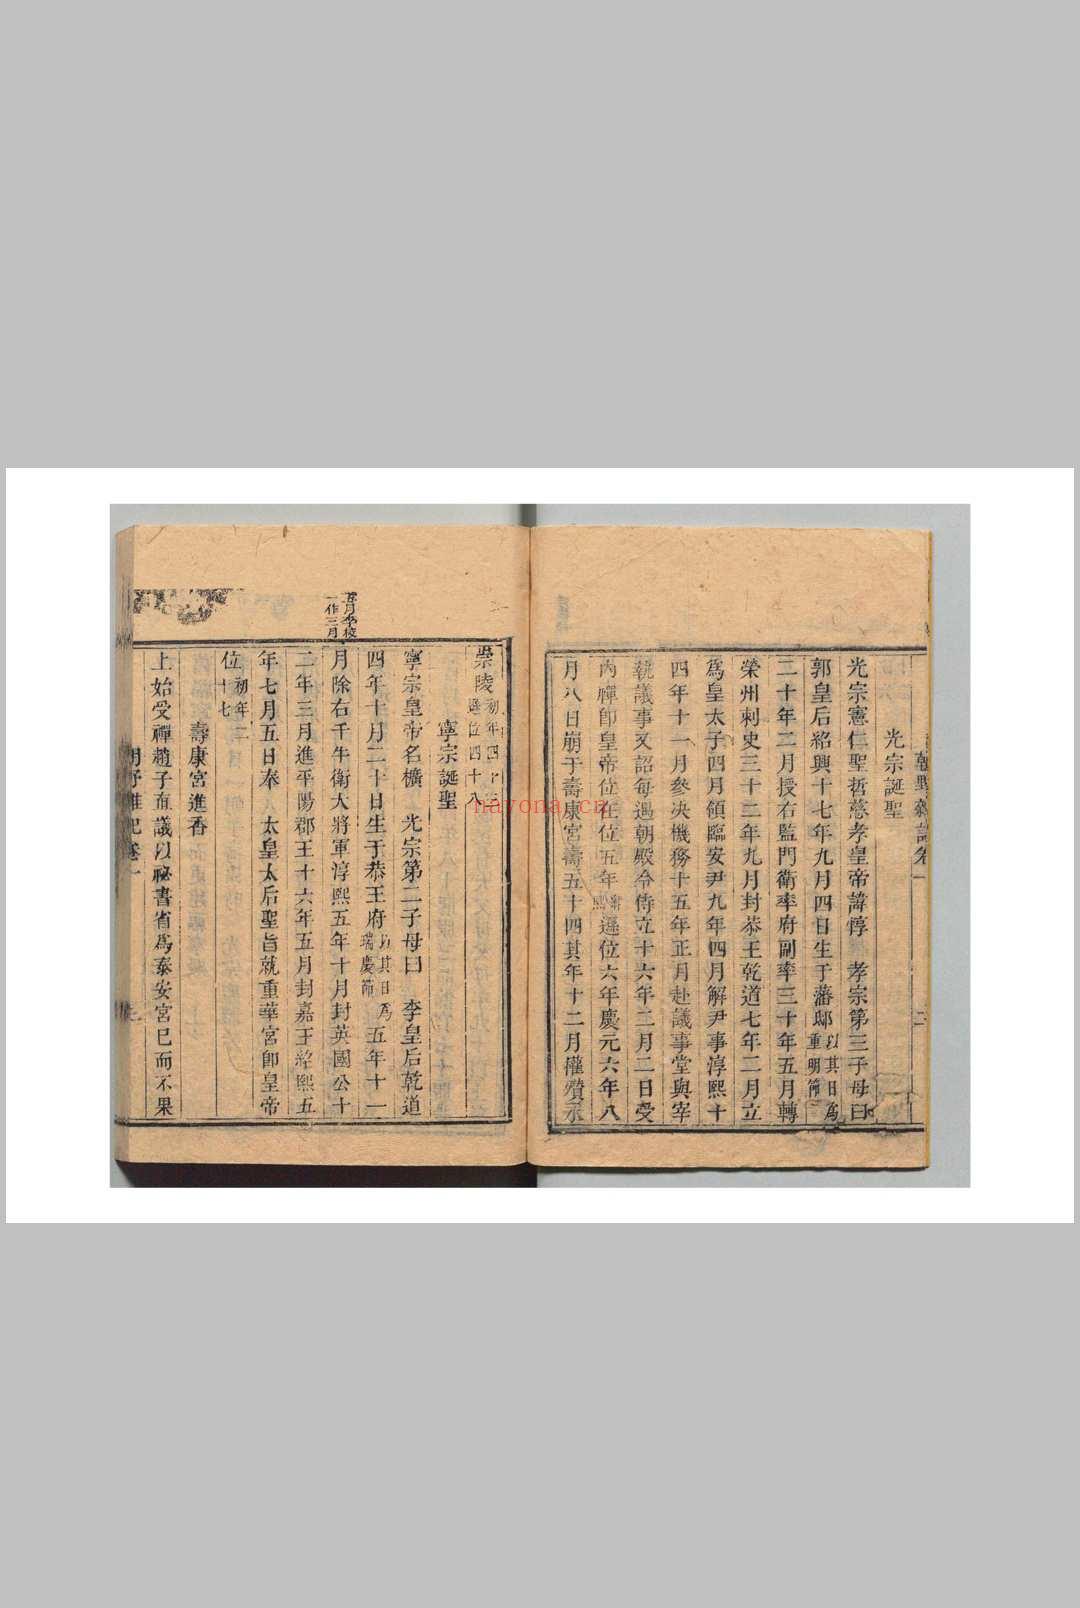 朝野雜記卷一
二
光宗誕聖
光宗憲仁聖哲慈孝皇帝諱惇 孝宗第三子母曰
郭皇后紹興十七年九月四日生于藩邸以其日為重明節
二十年二月授右監門衛率府副率三十年五月轉
榮州刺史三十二年九月封恭王乾道七年二月立
為皇太子四月領臨安尹九年四月解尹事淳熙十
四年十一月參決機務十五年正月赴議事堂與宰
執議事又詔每遇朝殿令侍立十六年二月二日受
內禪即皇帝位在位五年遜位六年慶元六年八
月八日崩于壽康宮壽五十四其年十二月權攢永
崇陵初年四十三遜位四十八
寧宗誕聖
寧宗皇帝名擴 光宗第二子母曰 李皇后乾道
四年十月二十日生于恭王府以其日為瑞慶節五年十一
月除右千牛衛大將軍淳熙五年十月封英國公十
二年三月進平陽郡王十六年五月封嘉王紹熙五
年七月五日奉 太皇太后聖旨就重華宮即皇帝
位初年二十七
壽康宮進香
上始受禪趙子直議以祕書省為泰安宮已而不果
朝野雜記卷一
五月李校
一作三月
nayona.cn